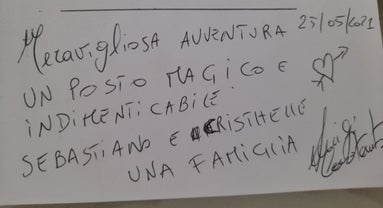 MERAVIGLIOSA AVVENTURA 23/05/2021
UN POSTO MAGICO E
INDIMENTICABILE
SEBASTIANO E CRISTHELLE
UNA FAMIGLIA